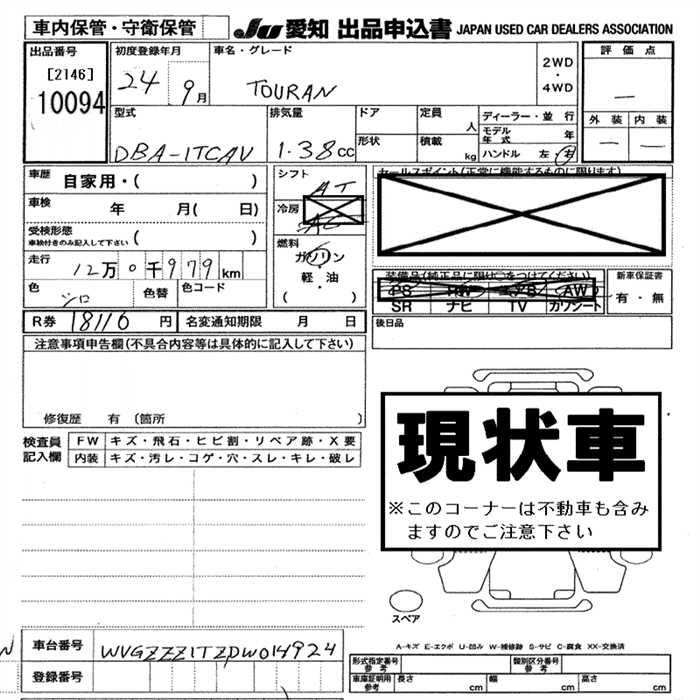 車内保管・守衛保管 JU 愛知 出品申込書 JAPAN USED CAR DEALERS ASSOCIATION
出品番号 初度登録年月 車名・グレード 評価点
[2146] 24 9月 TOURAN 2WD・4WD —
10094 外装 内装
型式 排気量 ドア 定員 人 ディーラー・並行 — —
形状 積載 kg モデル年式 年
DBA-1TCAV 1.38cc ハンドル 左 右
車歴 自家用・( ) シフト AT セールスポイント(正常に機能するものに限ります)
車検 年 月( 日) 冷房 AC
受検形態 ( )
車検付きのみ記入して下さい
燃料 ガソリン・軽・油 ( )
走行 12万0千979km
装備品(純正品に限り○をつけてください) 新車保証書
色 シロ 色替 色コード PS AW 有・無
SR ナビ TV カワシート
R券 18110円 名変通知期限 月 日 後日品
注意事項申告欄(不具合内容等は具体的に記入して下さい)
現状車
修復歴 有 (箇所 )
検査員記入欄 FW キズ・飛石・ヒビ割・リペア跡・X要
内装 キズ・汚レ・コゲ・穴・スレ・キレ・破レ
※このコーナーは不動車も含みますのでご注意下さい
スペア
A-キズ E-エクボ U-凹み W-補修跡 S-サビ C-腐食 XX-交換済
車台番号 WVGZZZ1TZDW014924
登録番号
形式指定番号 参考 類別区分番号 参考
車庫証明用 参考 長さ cm 幅 cm 高さ cm